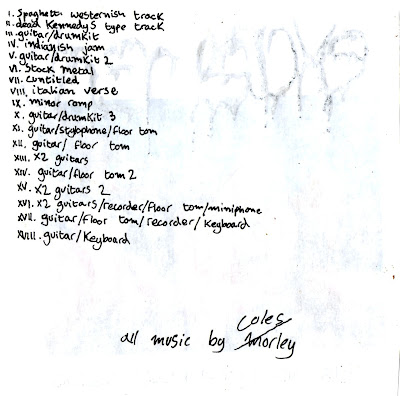 I. Spaghetti westernish track
II. dead Kennedys type track
III. guitar/drumkit
IV. indianish jam
V. guitar/drumkit 2
VI. Stock metal
VII. cuntitled
VIII. italian verse
IX. minor romp
X. guitar/drumkit 3
XI. guitar/stylophone/floor tom
XII. guitar/ floor tom
XIII. X2 guitars
XIV. guitar/floor tom 2
XV. X2 guitars 2
XVI. X2 guitars/recorder/floor tom/miniphone
XVII. guitar/floor tom/recorder/Keyboard
XVIII. guitar/Keyboard
coles
all music by Morley